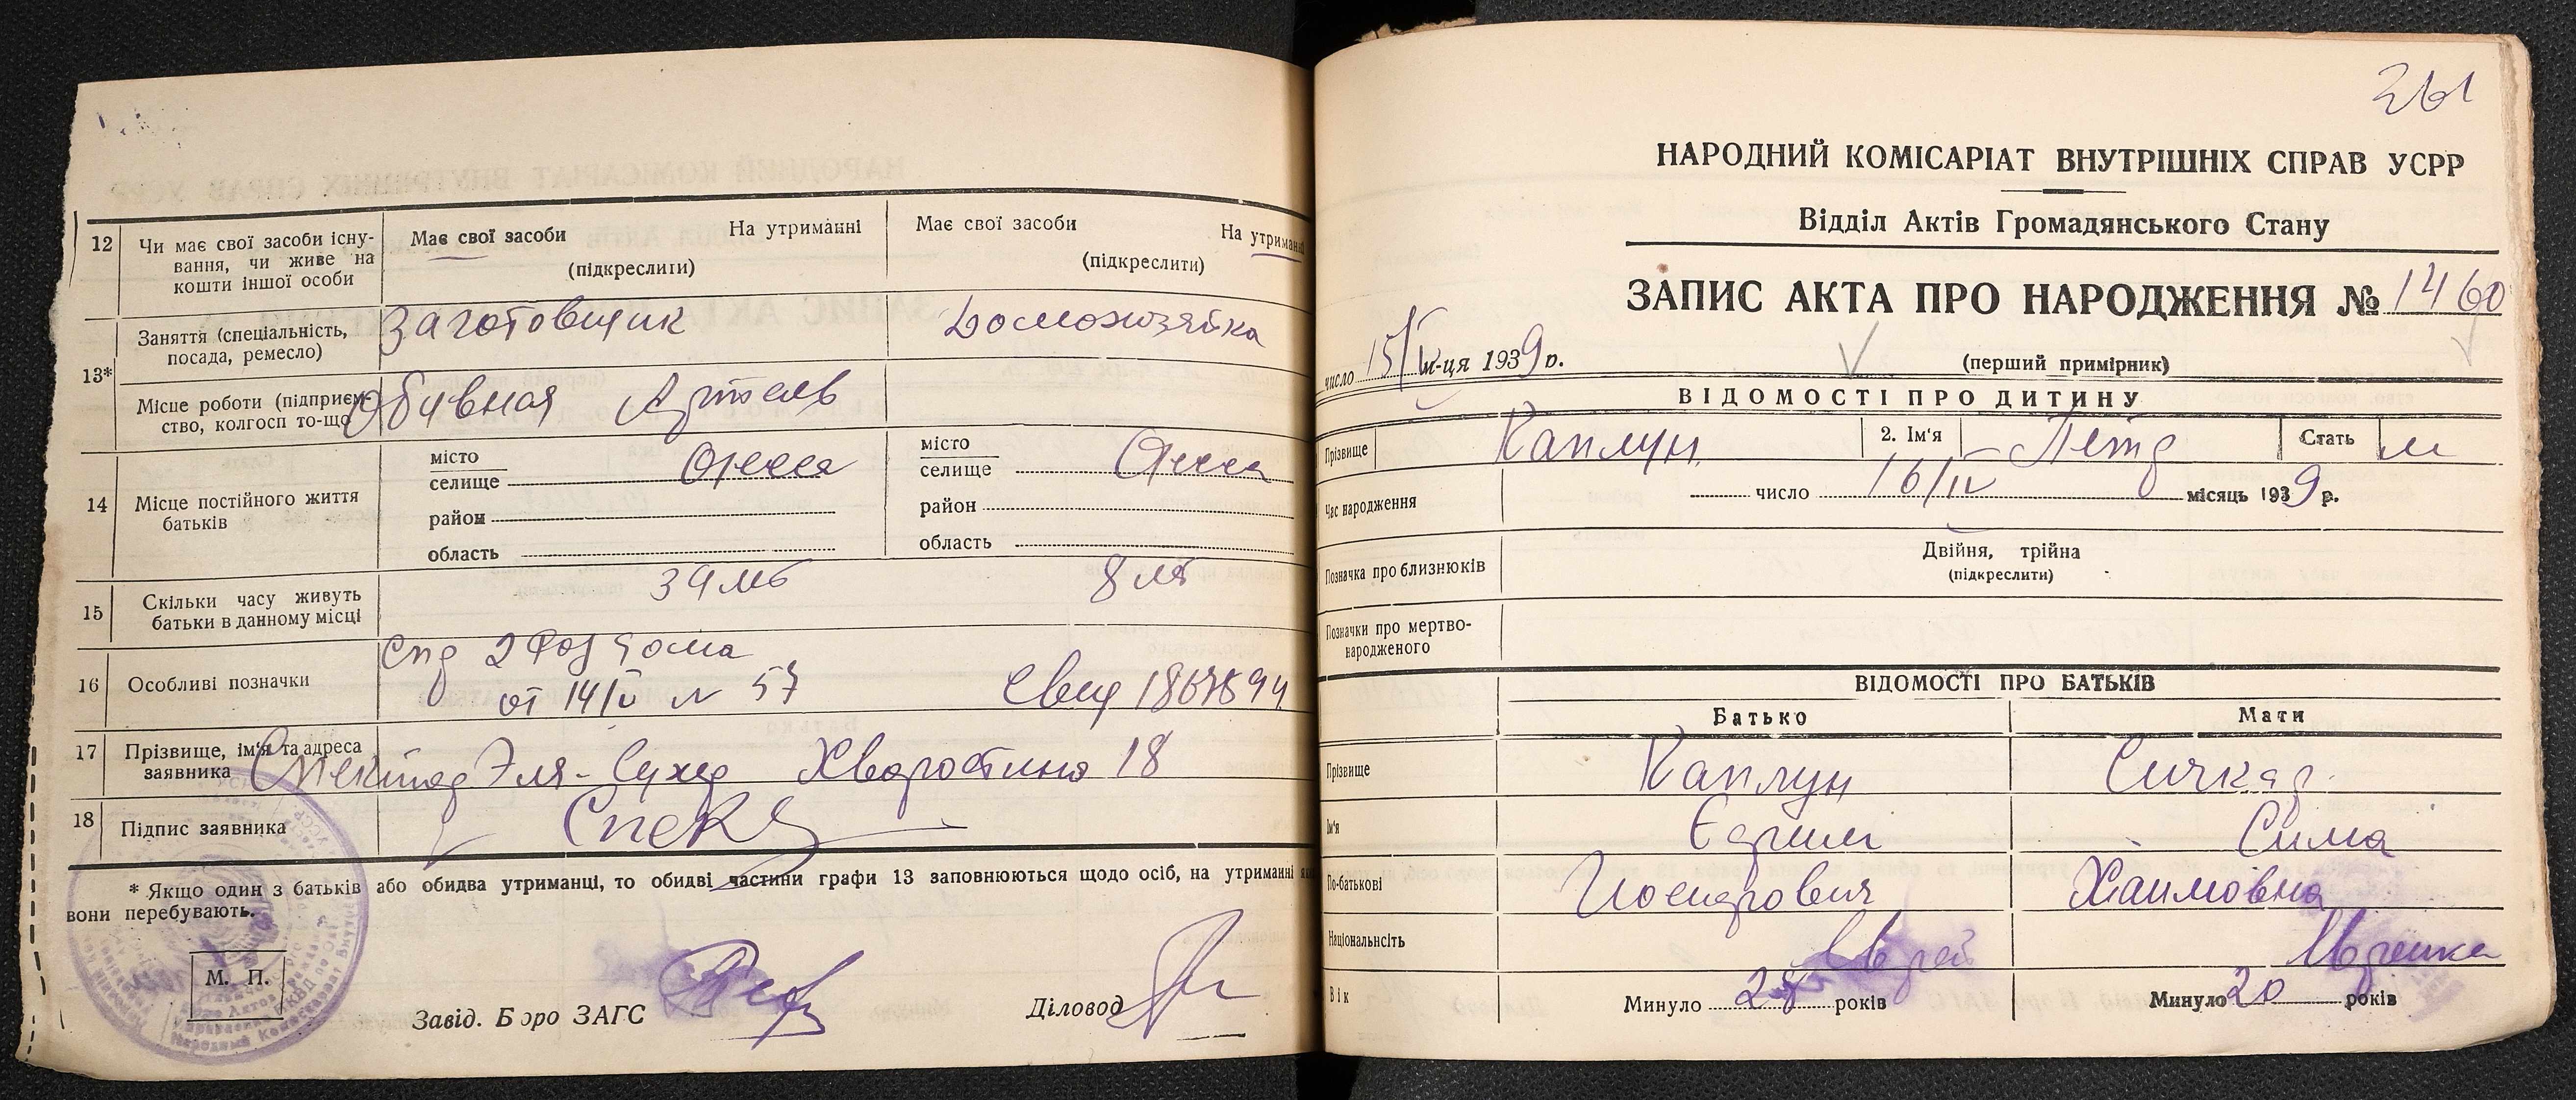 12 Чи має свої засоби існу-
вання, чи живе на
кошти іншої особи
Має свої засоби На утриманні
(підкреслити)
Має свої засоби На утриманні
(підкреслити)
13* Заняття (спеціальність,
посада, ремесло)
Заготовщик
Домохозяйка
Місце роботи (підприєм-
ство, колгосп то-що
Обувная Артель
14 Місце постійного життя
батьків
місто
селище Одесса
район
область
місто
селище Одесса
район
область
15 Скільки часу живуть
батьки в данному місці
8 лет
16 Особливі позначки
2 роддома
от 14/V N 57
17 Прізвище, ім'я та адреса
заявника
Хворостина 18
18 Підпис заявника
* Якщо один з батьків або обидва утриманці, то обидві частини графи 13 заповнюються щодо осіб, на утриманні
вони перебувають.
М. П.
Завід. Бюро ЗАГС
Діловод
261
НАРОДНИЙ КОМІСАРІАТ ВНУТРІШНІХ СПРАВ УСРР
Відділ Актів Громадянського Стану
ЗАПИС АКТА ПРО НАРОДЖЕННЯ № 1460
число 15/V м-ця 1939 р.
(перший примірник)
ВІДОМОСТІ ПРО ДИТИНУ
Прізвище Каплун 2. Ім'я Петр Стать м
Час народження
число 16/IV місяць 1939 р.
Позначка про близнюків
Двійня, трійна
(підкреслити)
Позначки про мертво-
народженого
ВІДОМОСТІ ПРО БАТЬКІВ
Батько Мати
Прізвище Каплун Сичкар
Ім'я Ефим Сима
По-батькові Иосифович Хаимовна
Національність Еврей Еврейка
Вік Минуло 28 років Минуло 20 років